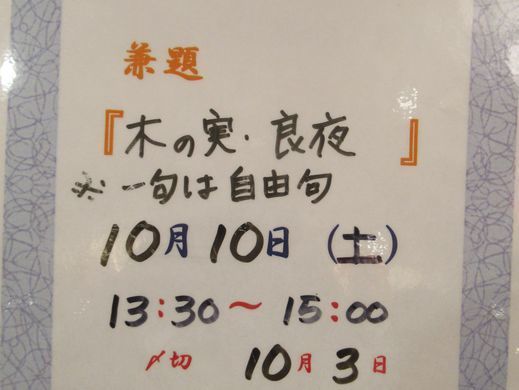 兼題
『木の実・良夜 』
※一句は自由句
10月10日(土)
13:30〜15:00
〆切 10月3日